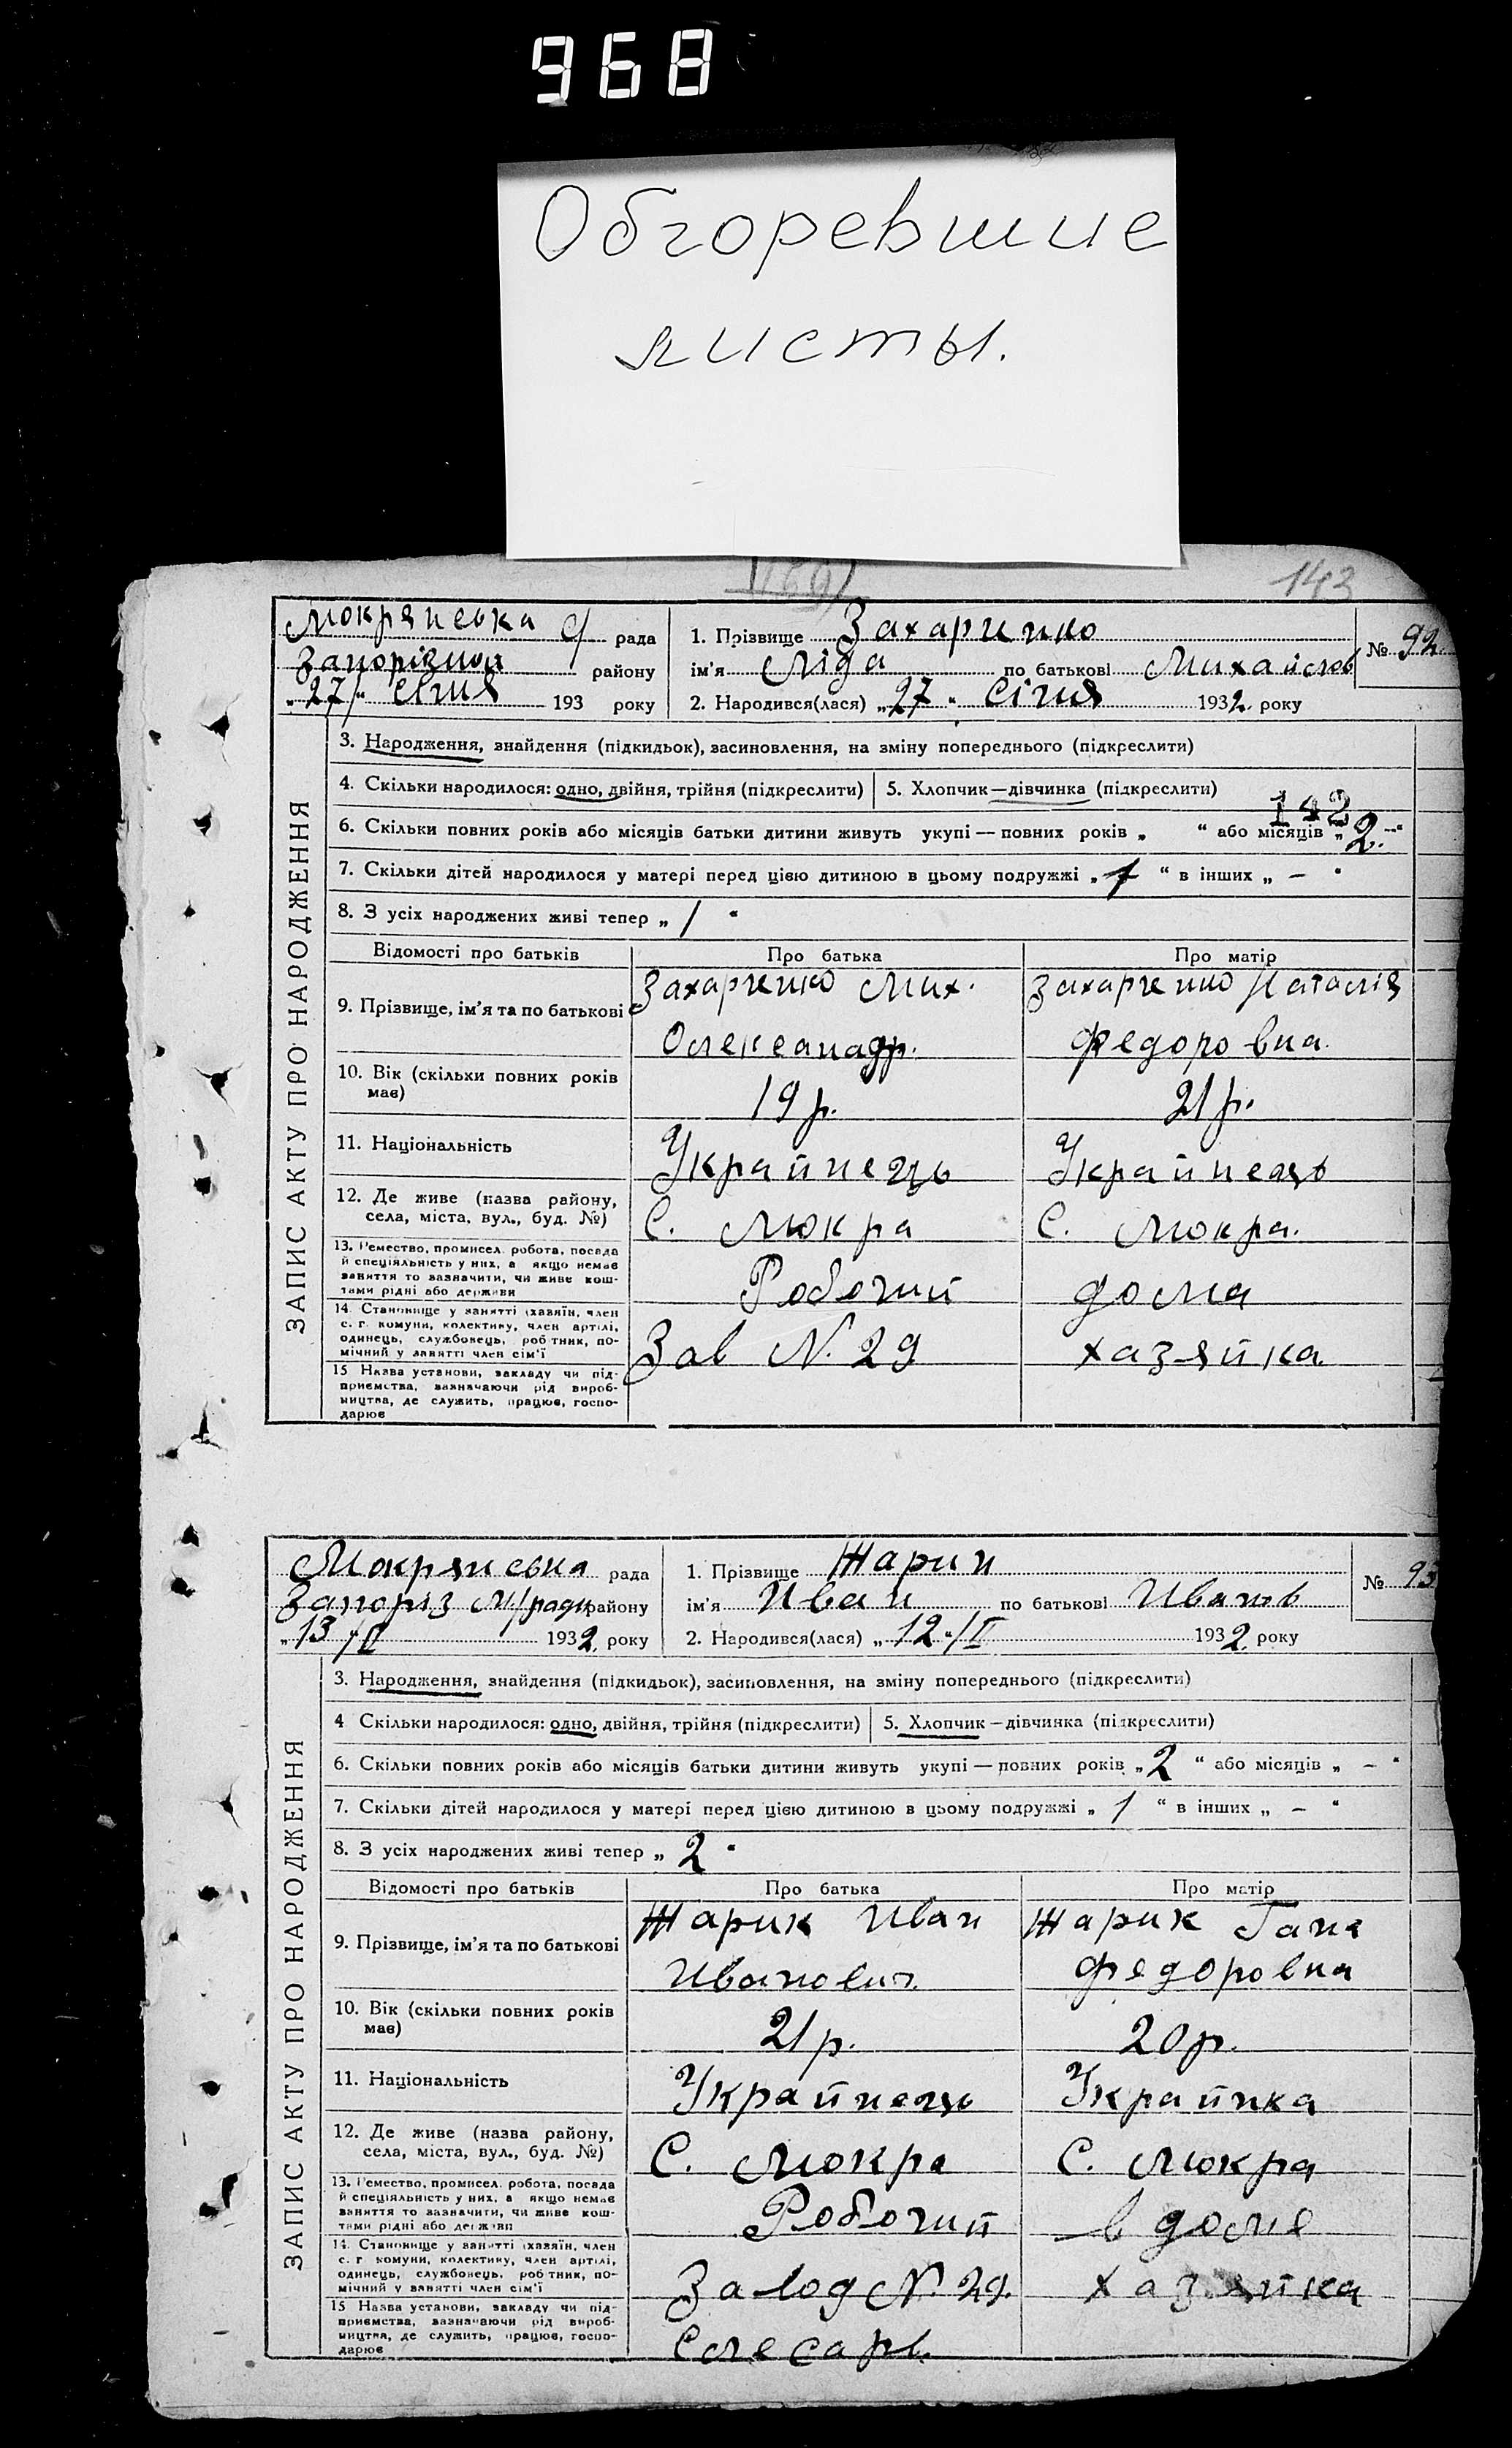 968
Обгоревшие
листы.
143
Мокрянська с/ рада
Запорізької району
„27“ січня 193 року
1. Прізвище Захарченко
ім'я Ліда по батькові Михайлов
№ 92
2. Народився(лася) „27“ Січня 1932 року
ЗАПИС АКТУ ПРО НАРОДЖЕННЯ
3. Народження, знайдення (підкидьок), засиновлення, на зміну попереднього (підкреслити)
4. Скільки народилося: одно, двійня, трійня (підкреслити) 5. Хлопчик—дівчинка (підкреслити)
142
6. Скільки повних років або місяців батьки дитини живуть укупі — повних років „ “ або місяців „2.–“
7. Скільки дітей народилося у матері перед цією дитиною в цьому подружжі „1“ в інших „ – “
8. З усіх народжених живі тепер „1“
Відомості про батьків Про батька Про матір
9. Прізвище, ім'я та по батькові
Захарченко Мих.
Олександр.
Захарченко Наталія
Федоровна.
10. Вік (скільки повних років має)
19 р. 21 р.
11. Національність
Украйнець Украйнець
12. Де живе (назва району, села, міста, вул., буд. №)
С. Мокра С. Мокра.
13. Ремество, промисел, робота, посада й спеціяльність у них, а якщо немає заняття то зазначити, чи живе коштами рідні або держави
Робочий дома
14. Становище у занятті (хазяїн, член с. г. комуни, колективу, член артілі, одинець, службовець, робітник, помічний у занятті член сім'ї
Зав N. 29 хазяйка
15 Назва установи, закладу чи підприємства, зазначаючи рід виробництва, де служить, працює, господарює
Мокрянська рада
Запоріз М/ради району
„13/II 1932 року
1. Прізвище Жарик
ім'я Иван по батькові Иванов
№ 93
2. Народився(лася) „12“/II 1932 року
ЗАПИС АКТУ ПРО НАРОДЖЕННЯ
3. Народження, знайдення (підкидьок), засиновлення, на зміну попереднього (підкреслити)
4 Скільки народилося: одно, двійня, трійня (підкреслити) 5. Хлопчик—дівчинка (підкреслити)
6. Скільки повних років або місяців батьки дитини живуть укупі — повних років „2“ або місяців „ – “
7. Скільки дітей народилося у матері перед цією дитиною в цьому подружжі „1“ в інших „ – “
8. З усіх народжених живі тепер „2“
Відомості про батьків Про батька Про матір
9. Прізвище, ім'я та по батькові
Жарик Иван
Иванович
Жарик Ганя
Федоровна
10. Вік (скільки повних років має)
21 р. 20 р.
11. Національність
Украйнець Украйнка
12. Де живе (назва району, села, міста, вул., буд. №)
С. Мокра С. Мокра
13. Ремество, промисел, робота, посада й спеціяльність у них, а якщо немає заняття то зазначити, чи живе коштами рідні або держави
Робочий в доме
14. Становище у занятті (хазяїн, член с. г. комуни, колективу, член артілі, одинець, службовець, робітник, помічний у занятті член сім'ї
Завод N. 29. хазяйка
15 Назва установи, закладу чи підприємства, зазначаючи рід виробництва, де служить, працює, господарює
Слесарь